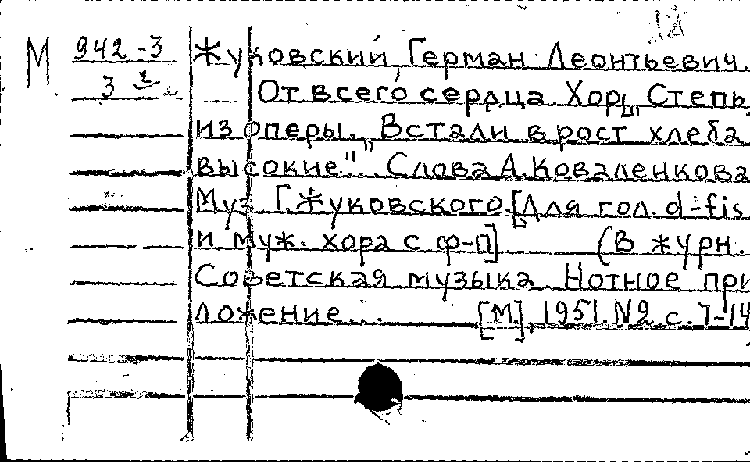 М 942-3 Жуковский, Герман Леонтьевич.
От всего сердца. Хор „Степь
из оперы. „Встали в рост хлеба
высокие". Слова А. Коваленкова
Муз. Г. Жуковского. [Для гол. d-fis
и муж. хора с ф-п] (В журн.
Советская музыка. Нотное при
ложение... [М], 1951. №2. с. 7-14